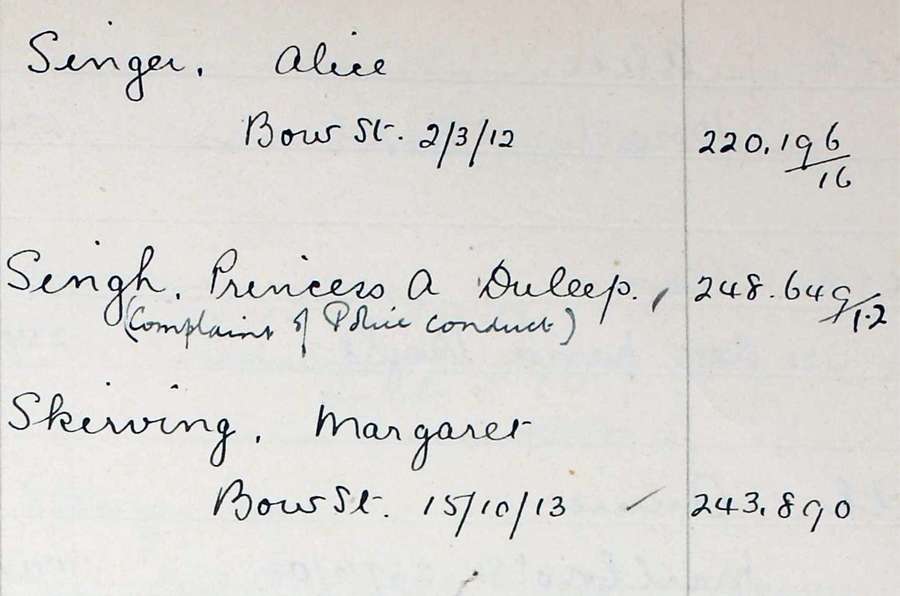 Singer, Alice
Bow St. 2/3/12 220.196/16
Singh, Princess A Duleep. 248.649/1.2
(Complaint of Police conduct)
Skirving, Margaret
Bow St. 15/10/13 243.890